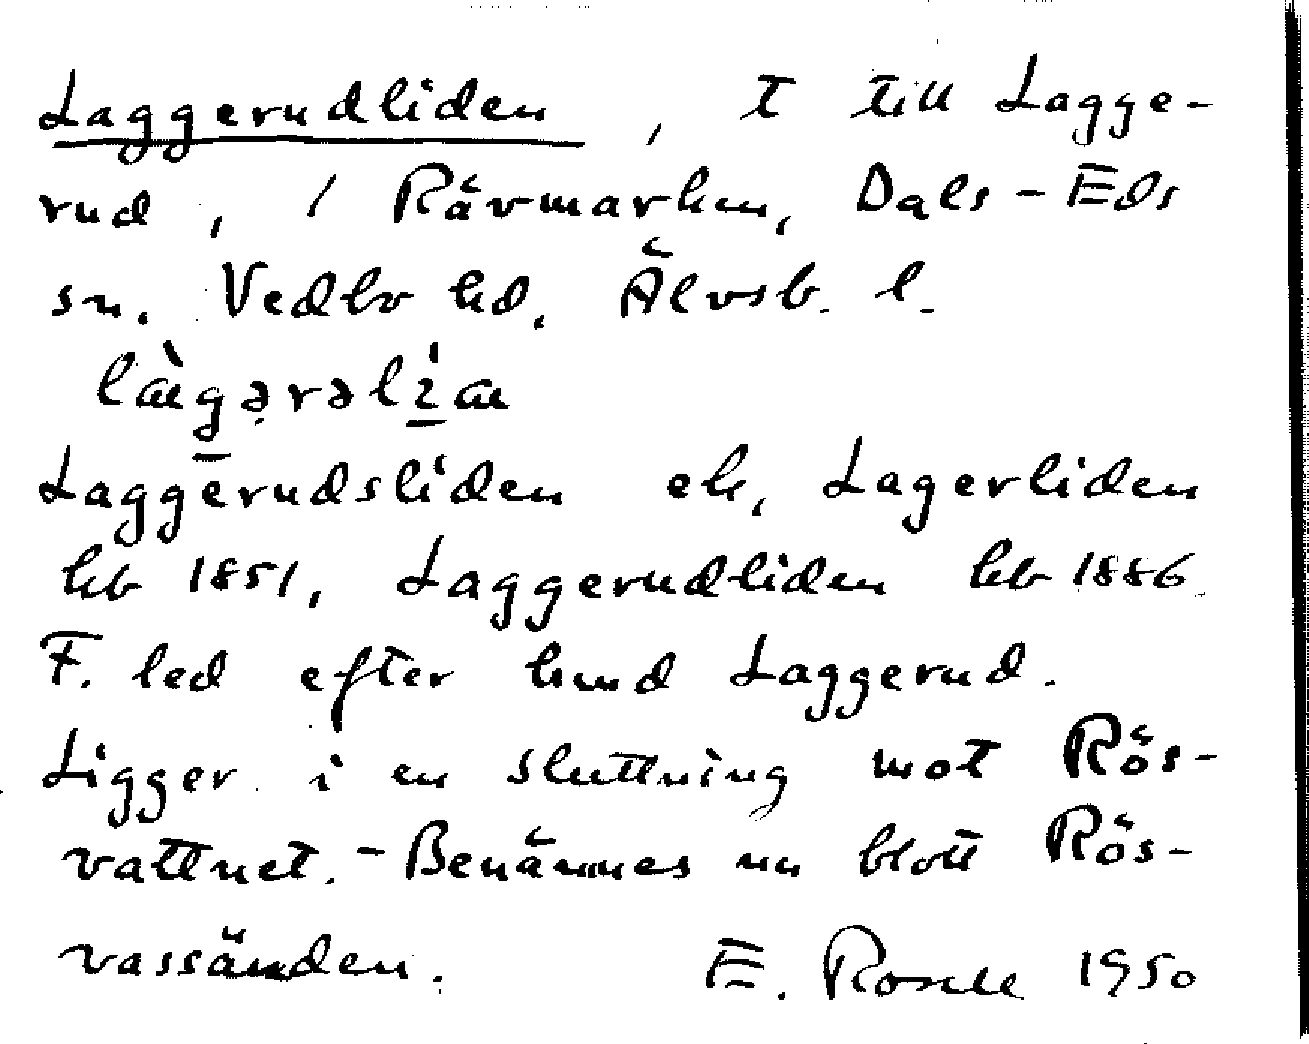 Laggerudliden, t till Lagge-
rud, 1 Rävmarken, Dals-Eds
sn. Vedbo hd. Älvsb. l.
Laggerudsliden el. Lagerliden
hb 1851, Laggerudliden hb 1886.
F. led efter hmd Laggerud.
Ligger i en sluttning mot Rös-
vattnet. - Benämnes nu blott Rös-
vassänden. E. Rosell 1950